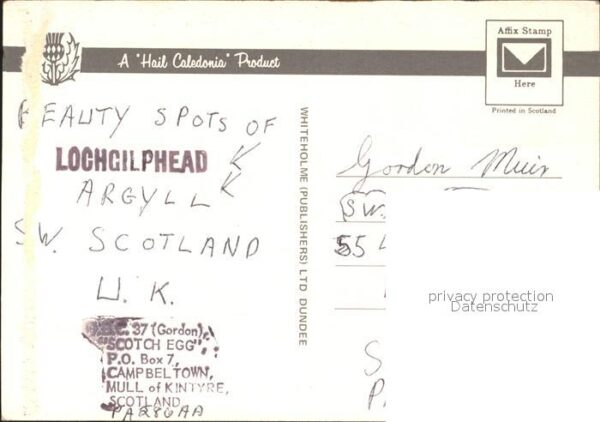 A "Hail Caledonia" Product
Affix Stamp
Here
Printed in Scotland
BEAUTY SPOTS OF
LOCHGILPHEAD
ARGYLL
SW. SCOTLAND
U. K.
37 (Gordon)
"SCOTCH EGG",
P.O. Box 7,
CAMPBELTOWN,
MULL of KINTYRE,
SCOTLAND
PA286AA
WHITEHOLME (PUBLISHERS) LTD DUNDEE
Gordon Muir
(SW.
55
S
P
privacy protection
Datenschutz